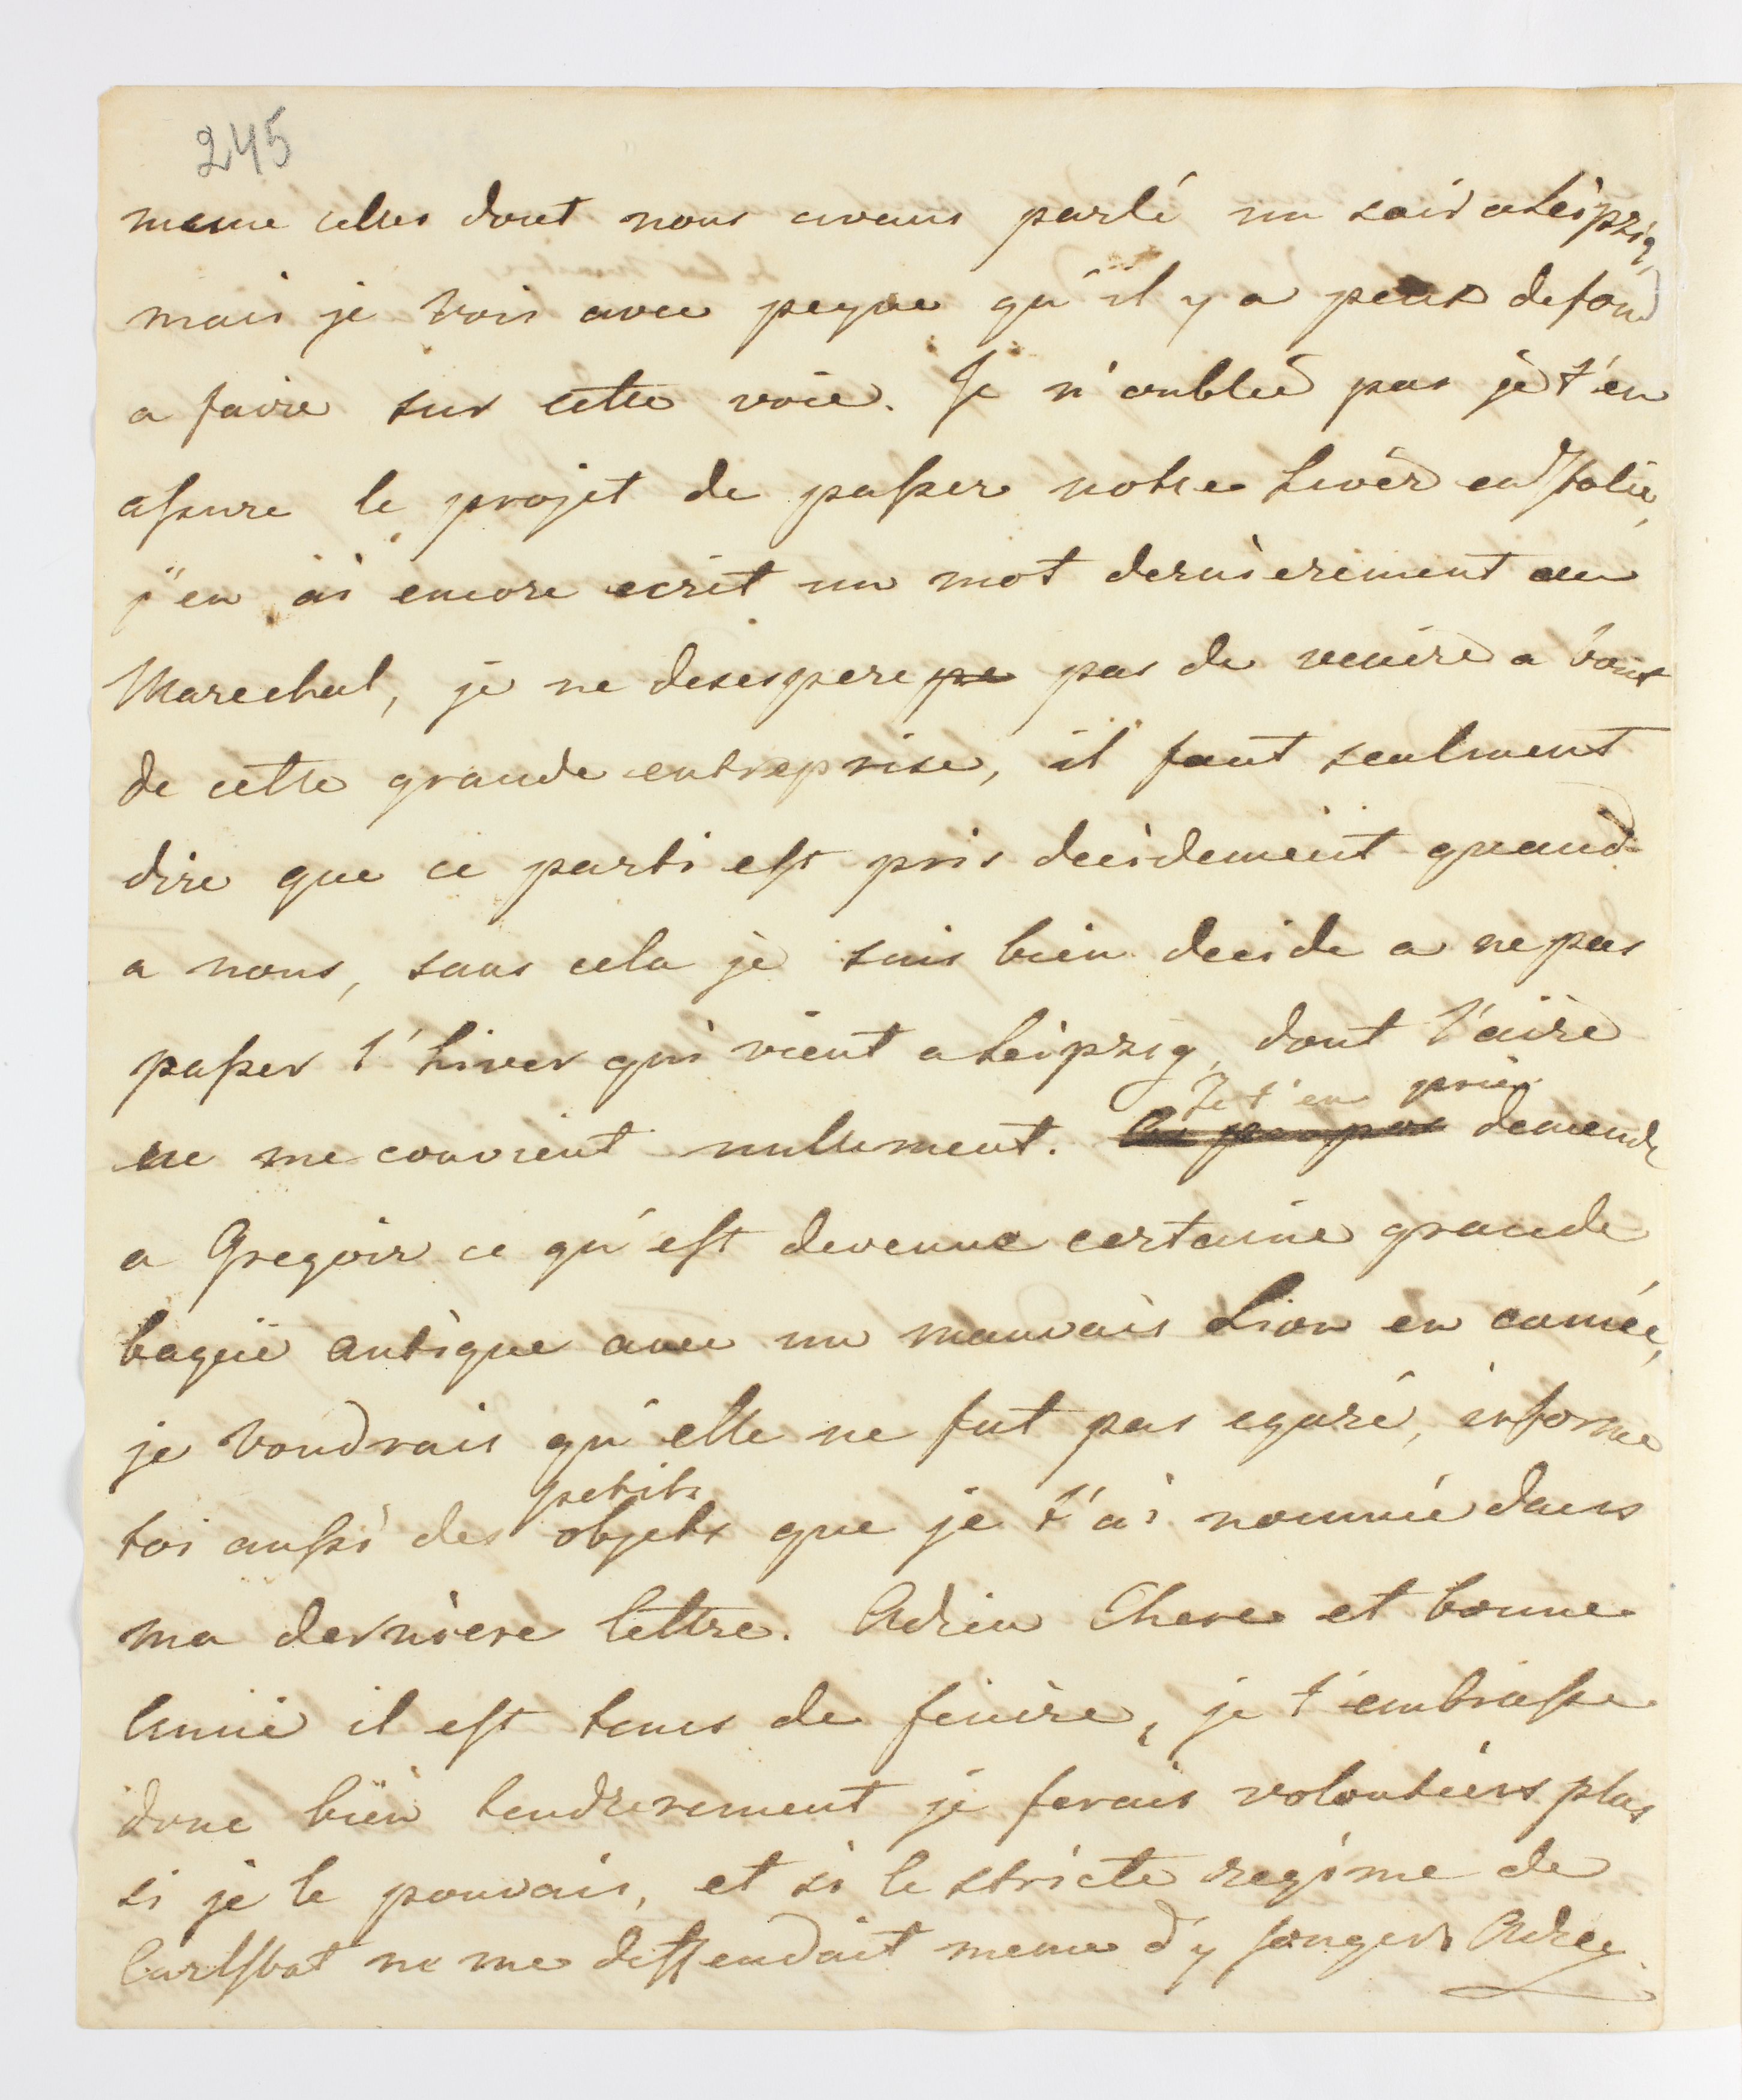 245
meme celles dont nous avons parlé un soir a Leipzig,
mais je vois avec peyne qu'il y a peux de fond
a faire sur cette voie. Je n'oublie pas je t'en
assure le projet de passer notre hiver en Italie,
j'en ai encore ecrit un mot dernierement au
Marechal, je ne desespere pe pas de venire a bout
de cette grande entreprise, il faut seulment
dire que ce parti est pris decidement quand
a nous, sans cela je suis bien decide a ne pas
passer l'hiver qui vient a Leipzig, dont l'aire
Je t'en prie
ne me convient nullement. demende
a Gregoir ce qu'est devenue certaine grande
bague antique avec un mauvais Lion en camée,
je voudrais qu'elle ne fut pas egaré, informe
petits
toi aussi des objets que je t'ai nommé dans
ma derniere lettre. Adieu Chere et bonne
Amie il est tems de finire, je t'embrasse
donc bien tendrerement je ferais volontiers plus
si je le pouvais, et si le stricte regime de
Carlsbat ne me deffendait meme d'y songer. Adieu